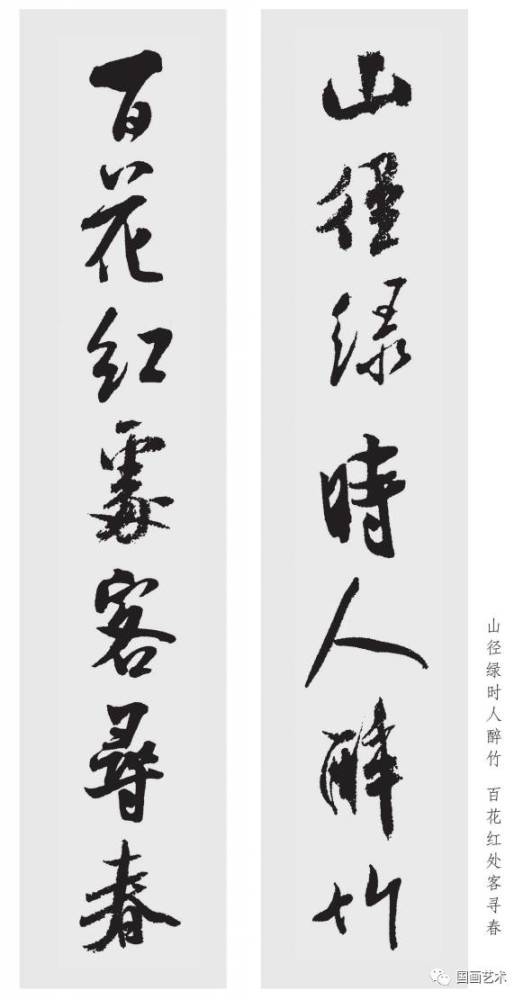 山径绿時人醉竹
百花红處客尋春
山径绿时人醉竹 百花红处客寻春
国画艺术